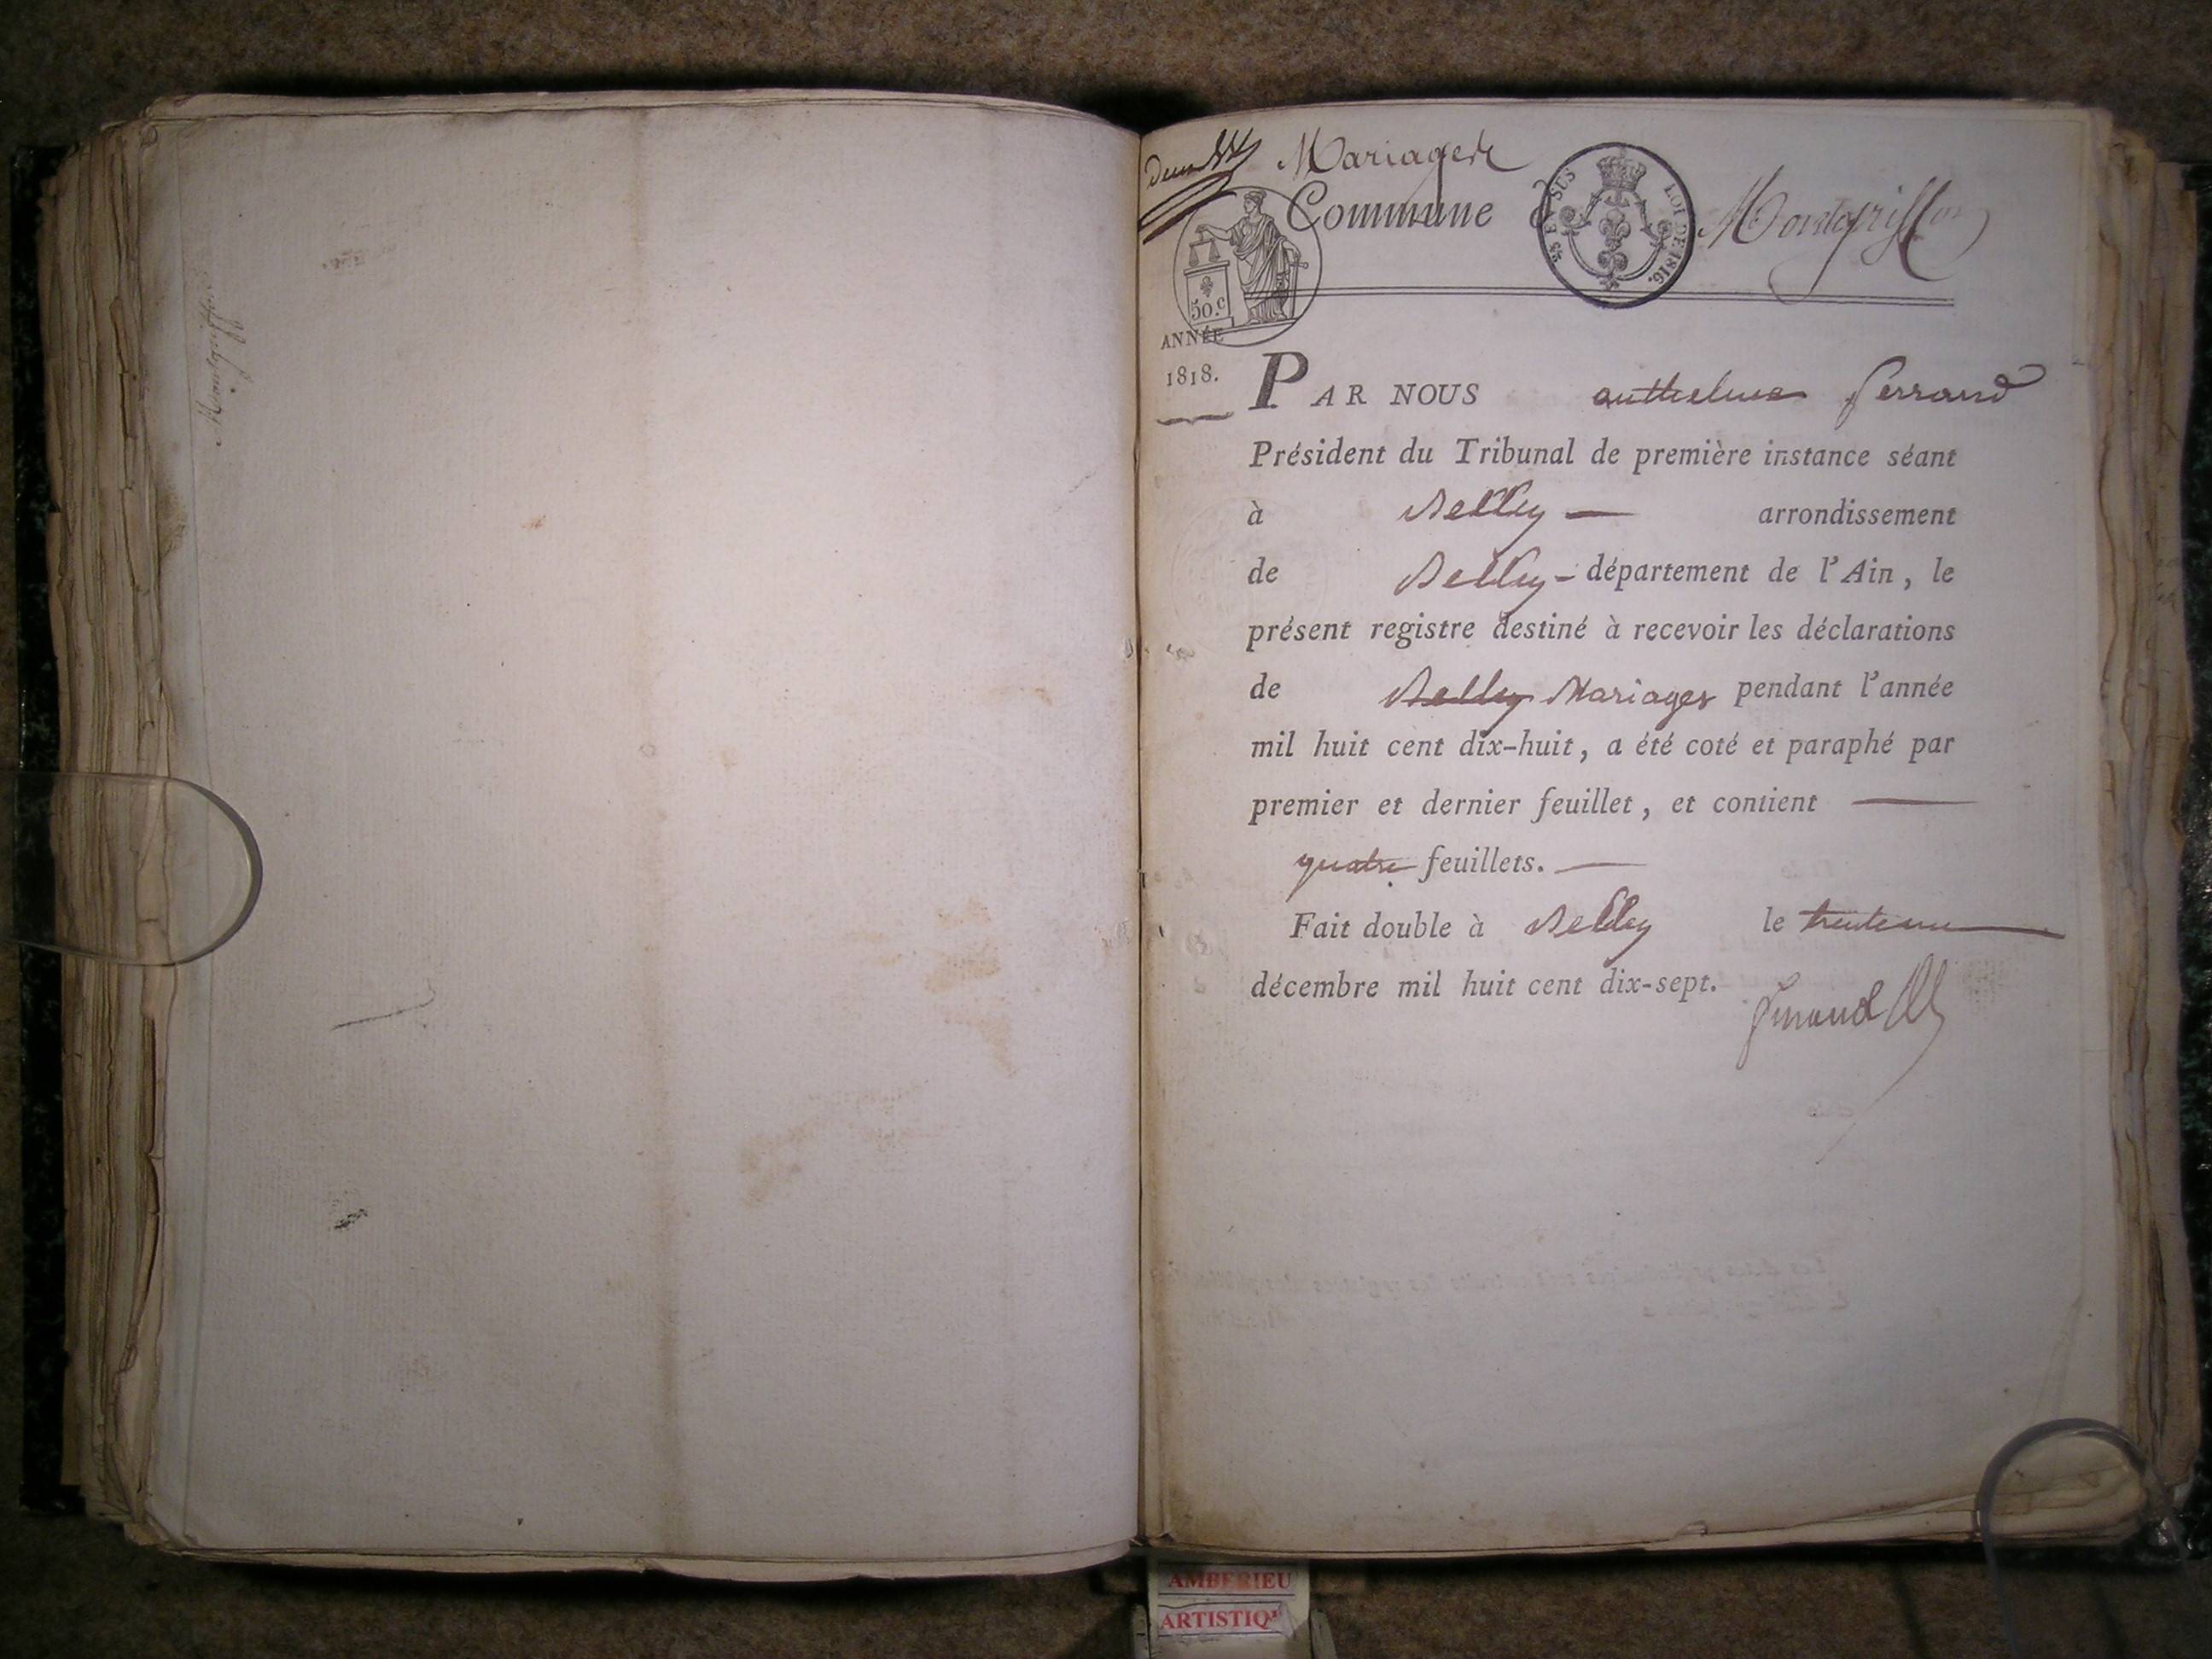 Mariage de
Commune de Montagrisson
50.c
EN SUS
LOI DE 1816.
ANNÉE
1818.
PAR NOUS anthelme Ferrand
Président du Tribunal de première instance séant
à Belley — arrondissement
de Belley - département de l'Ain, le
présent registre destiné à recevoir les déclarations
de Belley Mariages pendant l'année
mil huit cent dix-huit, a été coté et paraphé par
premier et dernier feuillet, et contient —
quatre feuillets. —
Fait double à Belley le trente un
décembre mil huit cent dix-sept.
Ferrand
AMBERIEU
ARTISTIQ